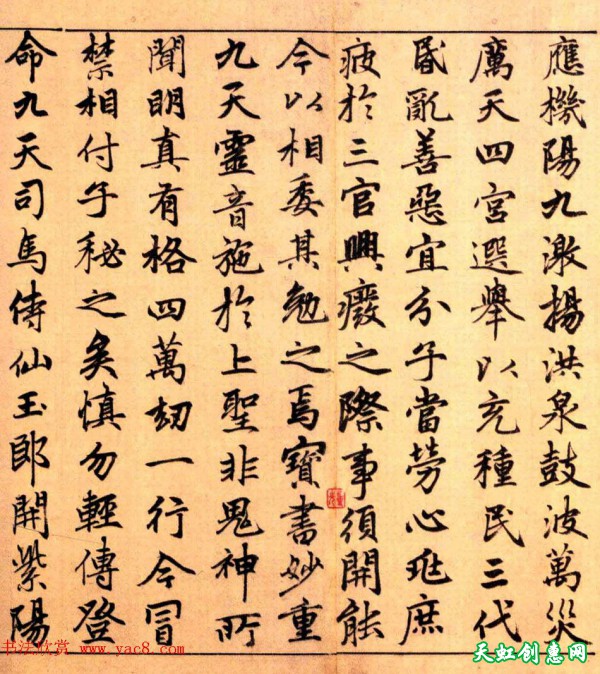 應機陽九激揚洪泉鼓波萬災
厲天四宮選舉以充種民三代
昏亂善惡宜分子當勞心兆庶
疲於三官興癈之際事須開能
今以相委其勉之焉寶書妙重
九天靈音施於上聖非鬼神所
聞明真有格四萬劫一行今冒
禁相付子秘之矣慎勿輕傳登
命九天司馬侍仙玉郎開紫陽
书法欣赏 www.yac8.com
天虹创惠网